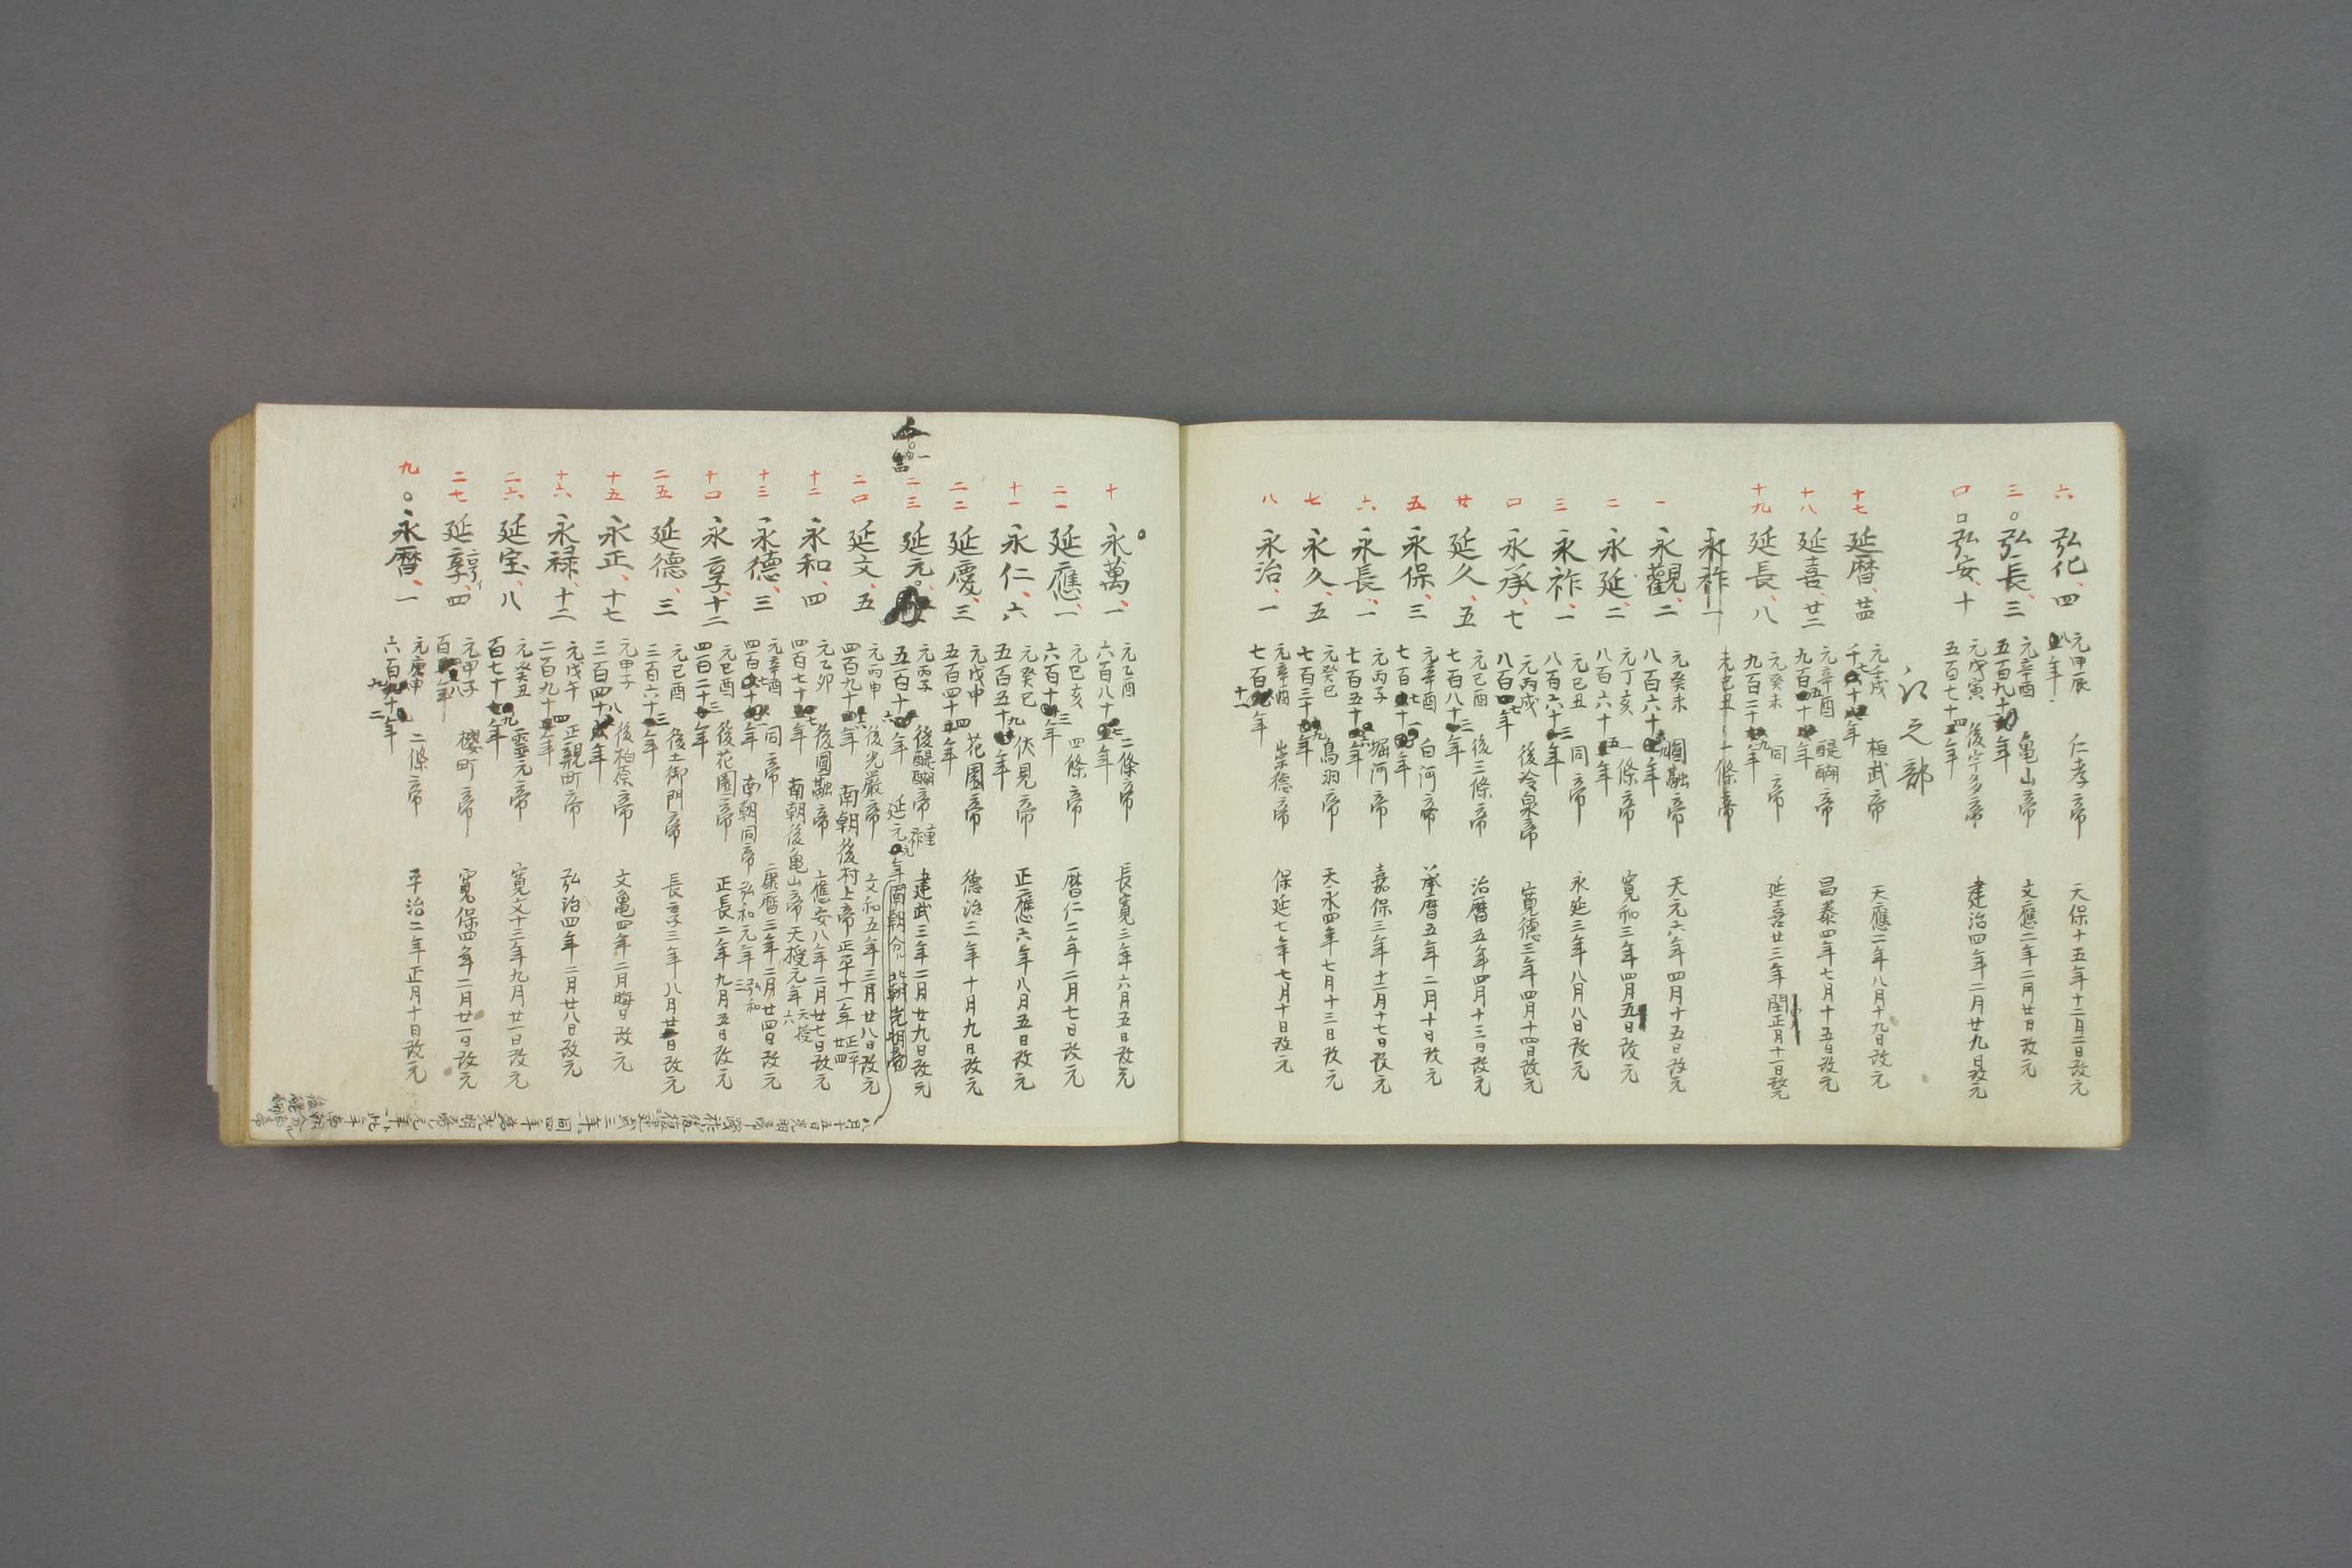 六 弘化、四 元甲辰 年 仁孝帝 天保十五年十二月二日改元
三 弘長、三 元辛酉 五百九十年 亀山帝 文應二年二月廿日改元
四 弘安、十 元戊寅 五百七十四年 後宇多帝 建治四年二月廿九日改元
江之部
十七 延暦、 元壬戌 千七十年 桓武帝 天應二年八月十九日改元
十八 延喜、廿二 元辛酉 九百五十年 醍醐帝 昌泰四年七月十五日改元
十九 延長、八 元癸未 九百二十九年 同帝 延喜廿三年閏
永祚一 元己丑 一條帝
一 永觀、二 元癸未 八百六十九年 圓融帝 天元六年四月十五日改元
二 永延、二 元丁亥 八百六十五年 一條帝 寛和三年四月五日改元
三 永祚、一 元己丑 八百六十三年 同帝 永延三年八月八日改元
四 永承、七 元丙戌 八百七年 後冷泉帝 寛徳三年四月十四日改元
廿 延久、五 元己酉 七百八十三年 後三條帝 治暦五年四月十三日改元
五 永保、三 元辛酉 七百七十一年 白河帝 承暦五年二月十日改元
六 永長、一 元丙子 七百五十六年 堀河帝 嘉保三年十二月十七日改元
七 永久、五 元癸巳 七百三十九年 鳥羽帝 天永四年七月十三日改元
八 永治、一 元辛酉 七百十一年 崇徳帝 保延七年七月十日改元
十 永萬、一 元乙酉 六百八十七年 二條帝 長寛三年六月五日改元
二一 延應、一 元己亥 六百十三年 四條帝 暦仁二年二月七日改元
十一 永仁、六 元癸巳 五百五十九年 伏見帝 正應六年八月五日改元
二二 延慶、三 元戊申 五百四十四年 花園帝 德治三年十月九日改元
二三 延元、 元丙子 五百十六年 後醍醐帝 重祚 建武三年二月廿九日改元
延元元年南朝分北朝光明帝
二四 延文、五 元丙申 四百九十六年 後光厳帝 文和五年三月廿八日改元
南朝後村上帝正平十一年 正平廿四
十二 永和、四 元乙卯 四百七十七年 後圓融帝 應安八年二月廿七日改元
南朝後亀山帝天授元年 天授六
十三 永德、三 元辛酉 四百七十一年 同帝 康暦三年二月廿四日改元
南朝同帝弘和元年 弘和三
十四 永享、十二 元己酉 四百二十三年 後花園帝 正長二年九月五日改元
二五 延德、三 元己酉 三百六十三年 後土御門帝 長享三年八月廿日改元
十五 永正、十七 元甲子 三百四十八年 後柏原帝 文亀四年二月晦日改元
十六 永禄、十二 元戊午 二百九十四年 正親町帝 弘治四年二月廿八日改元
二六 延宝、八 元癸丑 百七十九年 霊元帝 寛文十三年九月廿一日改元
二七 延享、四 元甲子 百八年 櫻町帝 寛保四年二月廿一日改元
九 永暦、一 元庚申 六百九十二年 二條帝 平治二年正月十日改元